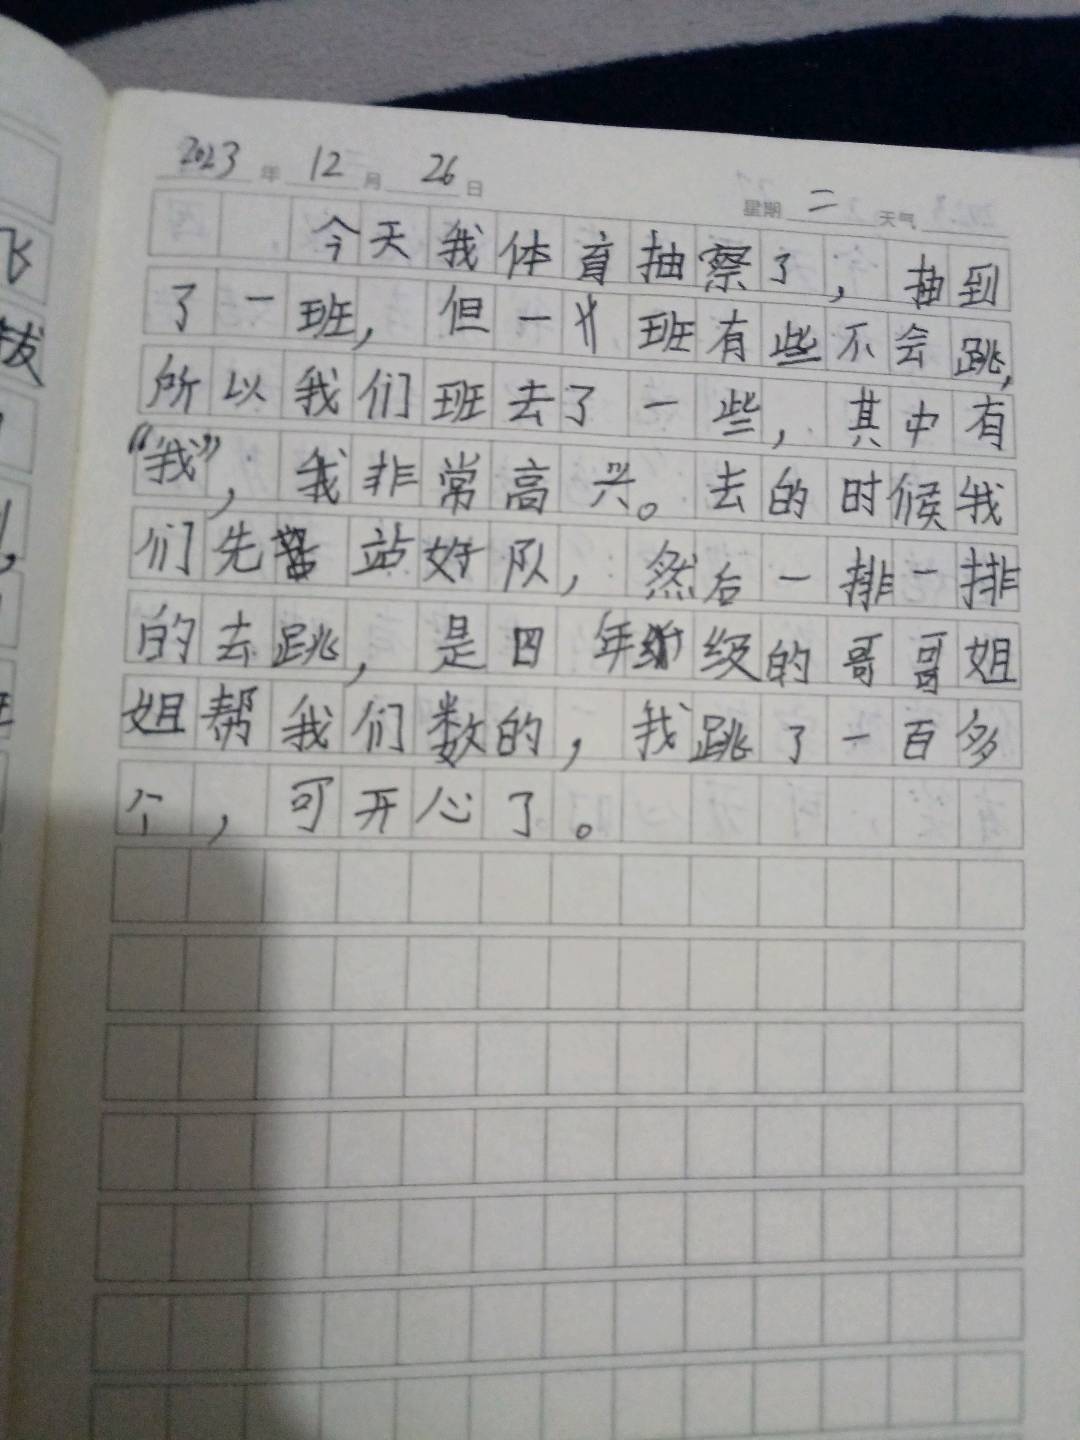 2023 年 12 月 26 日
星期 二 天气
今天我体育抽察了，抽到
了一班，但一班有些不会跳，
所以我们班去了一些，其中有
“我”，我非常高兴。去的时候我
们先站好队，然后一排一排
的去跳，是四年级的哥哥姐
姐帮我们数的，我跳了一百多
个，可开心了。
飞
拔